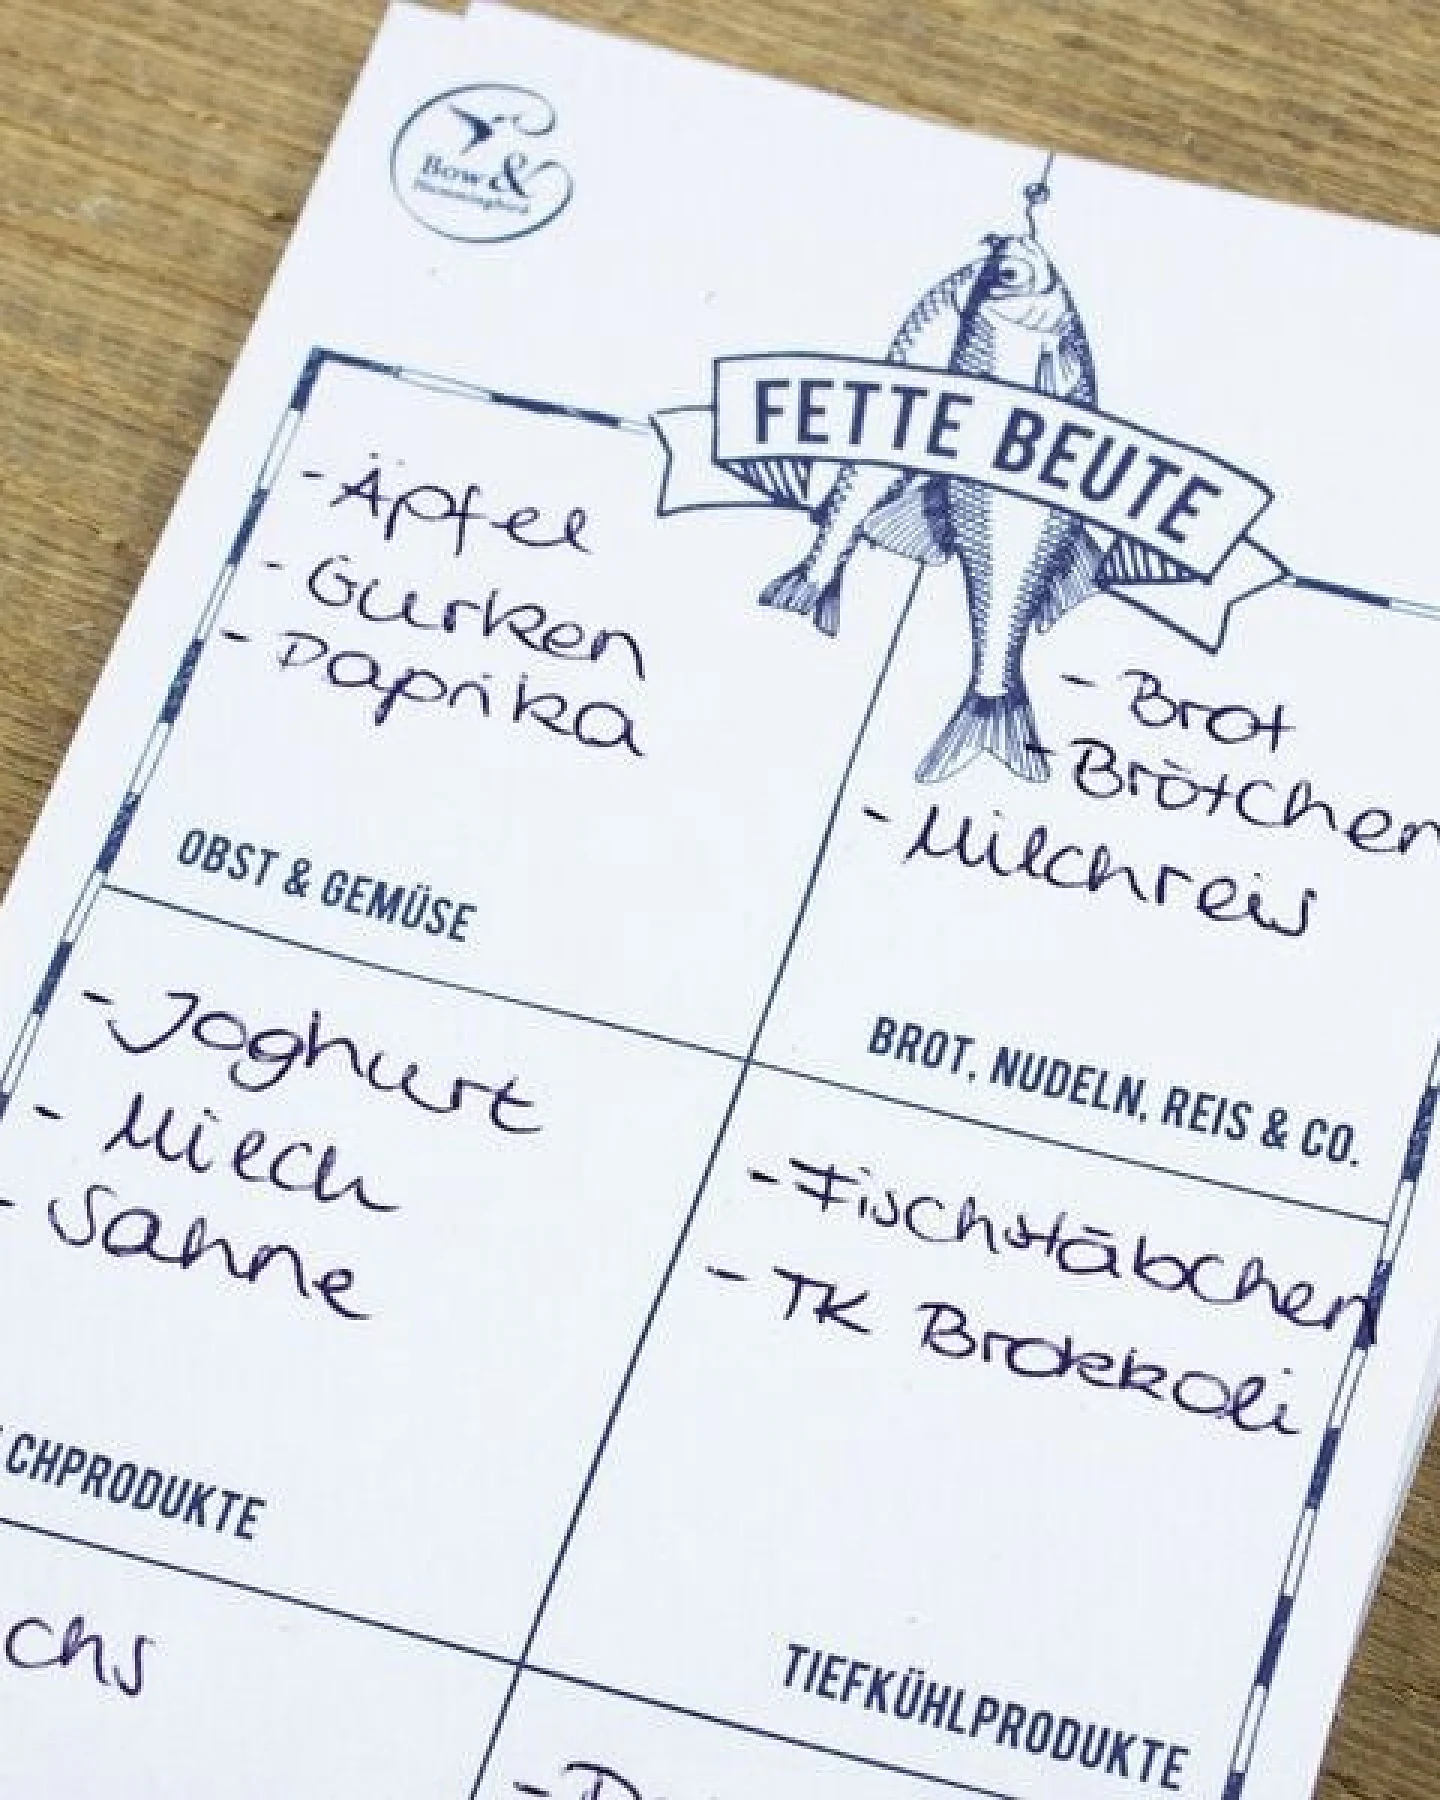 Bow &
Hummingbird
FETTE BEUTE
- Äpfel
- Gurken
- Paprika
OBST & GEMÜSE
- Brot
- Brötchen
- Milchreis
BROT, NUDELN, REIS & CO.
- Joghurt
- Milch
- Sahne
CHPRODUKTE
- Fischstäbchen
- TK Brokkoli
TIEFKÜHLPRODUKTE
chs